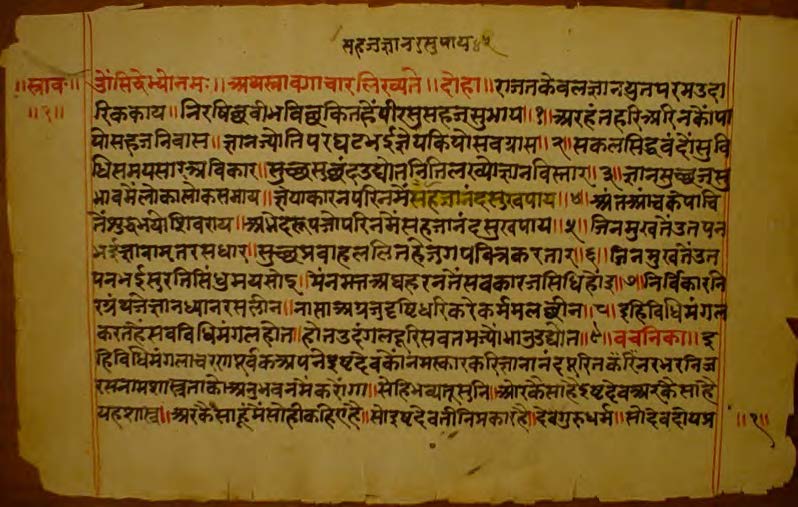 सहजज्ञानरसुपाय
॥श्राव॰॥ उोंसिद्धेभ्योनमः॥ अथस्रावगाचारलिख्यते॥ दोहा॥ राजतकेवलज्ञानयुतपरमउदा
॥१॥ रिककाय॥ निरषिछबीभविछकितहैंपीरसुसहजसुभाय॥१॥ अरहंतहरिअरिनकोंपा
योसहजनिवास॥ ज्ञानज्योतिपरघटभईज्ञेयकियोसवग्रास॥२॥ सकलसिद्धवंदोंसुवि
धिसमयसारअविकार॥ सुच्छसुछंदउद्योतनितिलख्योज्ञानविस्तार॥३॥ ज्ञानसुच्छजसु
भावमेंलोकालोकसमाय॥ ज्ञेयाकारनपरिनमेंसहजानंदसुखपाय॥४॥ अंतआंचकेपाचि
तेंशुद्धभयेशिवराय॥ अभेदरूपजोपरिनमेंसहजानंदसुखपाय॥५॥ जिनमुखतेंउतपन
भईज्ञानामृतरसधार॥ सुच्छप्रवाहललितहैजगपवित्रकरतार॥६॥ जिनमुखतेंउत
पनभईसुरतिसिंधुमयसोइ॥ मैंनमतअघहरनतेंसवकारजसिधिहोइ॥७॥ निर्विकारनि
रग्रंथजेज्ञानध्यानरसलीन॥ नासाअग्रजुदृष्टिधरिकरेकर्ममलछीन॥८॥ इहिविधिमंगल
करतहैंसवविधिमंगलहोत॥ होतउदंगलदूरिसवतमज्योंभानुउद्योत॥९॥ वचनिका॥ इ
हिविधिमंगलाचरणपूर्वकअपनेइष्टदेवकोंनमस्कारकरिज्ञानानंदपूरित
रसनामशास्त्रताकोअनुभवनमेंकरोंगा॥ सोहेभव्यतूसुनि॥ ओरकैसाहैइष्टदेवअरकैसाहै
यहशास्त्र॥ अरकैसाहूंमेंसोहीकहिएहै॥ सोइष्टदेवतीनिप्रकारहै॥ देवगुरुधर्म॥ सोदेवदोयप्र ॥१॥